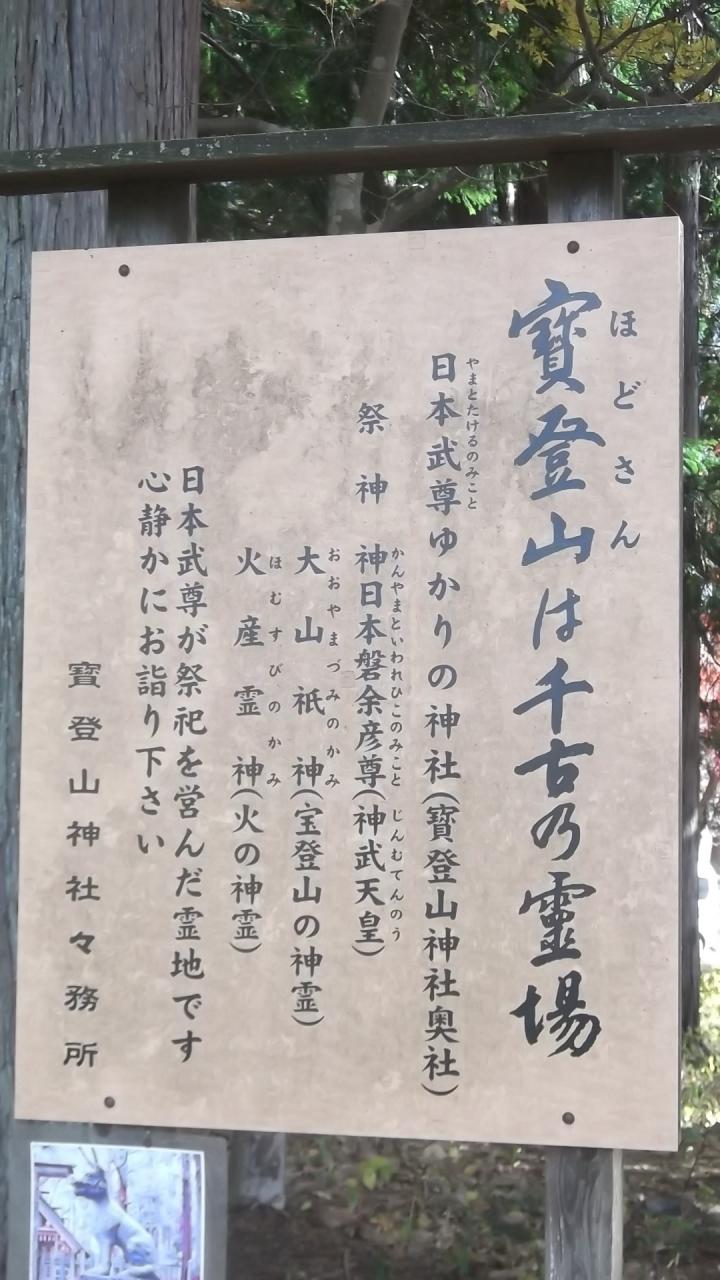 寶登山は千古乃靈場
ほどさん
日本武尊ゆかりの神社(寶登山神社奥社)
やまとたけるのみこと
祭神 神日本磐余彦尊(神武天皇)
かんやまといわれひこのみこと じんむてんのう
大山祇神(宝登山の神霊)
おおやまづみのかみ
火産霊神(火の神霊)
ほむすびのかみ
日本武尊が祭祀を営んだ霊地です
心静かにお詣り下さい
寶登山神社々務所